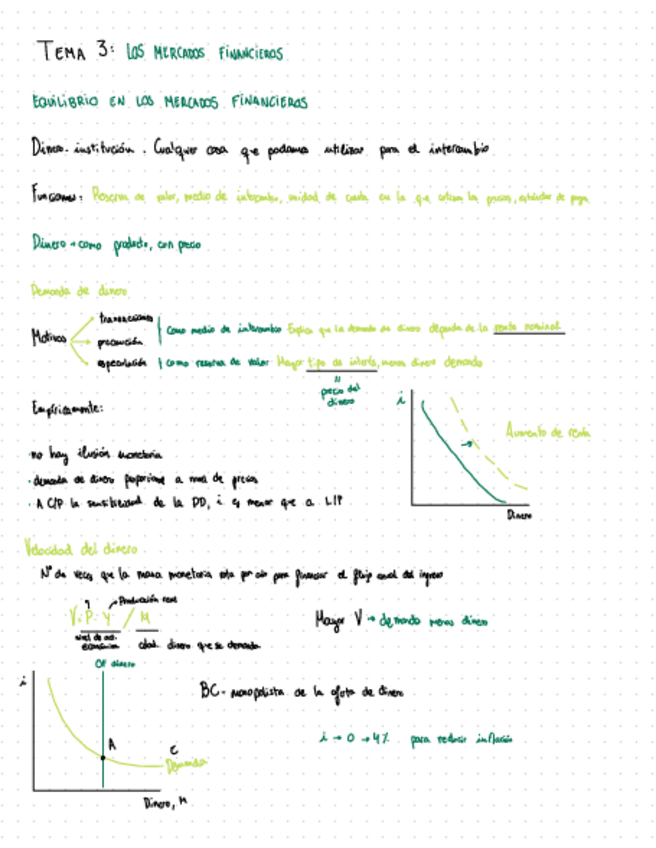 TEMA 3: LOS MERCADOS FINANCIEROS
EQUILIBRIO EN LOS MERCADOS FINANCIEROS
Dinero. institución. Cualquier cosa que podamos utilizar para el intercambio
Funciones: Reserva de valor, medio de intercambio, unidad de cuenta en la que cotizan los precios, estándar de pago
Dinero → como producto, con precio
Demanda de dinero
transacciones
Motivos
precaución
especulación
como medio de intercambio Explica que la demanda de dinero dependa de la renta nominal
como reserva de valor Mayor tipo de interés, menos dinero demando
precio del
dinero
Empíricamente:
i
Aumento de renta
Dinero
· no hay ilusión monetaria
· demanda de dinero proporcional a nivel de precios
· A C/P la sensibilidad de la DD, i es menor que a L/P
Velocidad del dinero
Nº de veces que la masa monetaria rota por año para financiar el flujo anual del ingreso
Producción real
V = P · Y / M
nivel de act.
económica
cdad. dinero que se demanda
Mayor V → demando menos dinero
Of dinero
i
A
Demanda
Dinero, M
BC - monopolista de la oferta de dinero
i → 0 → 4% para reducir inflación